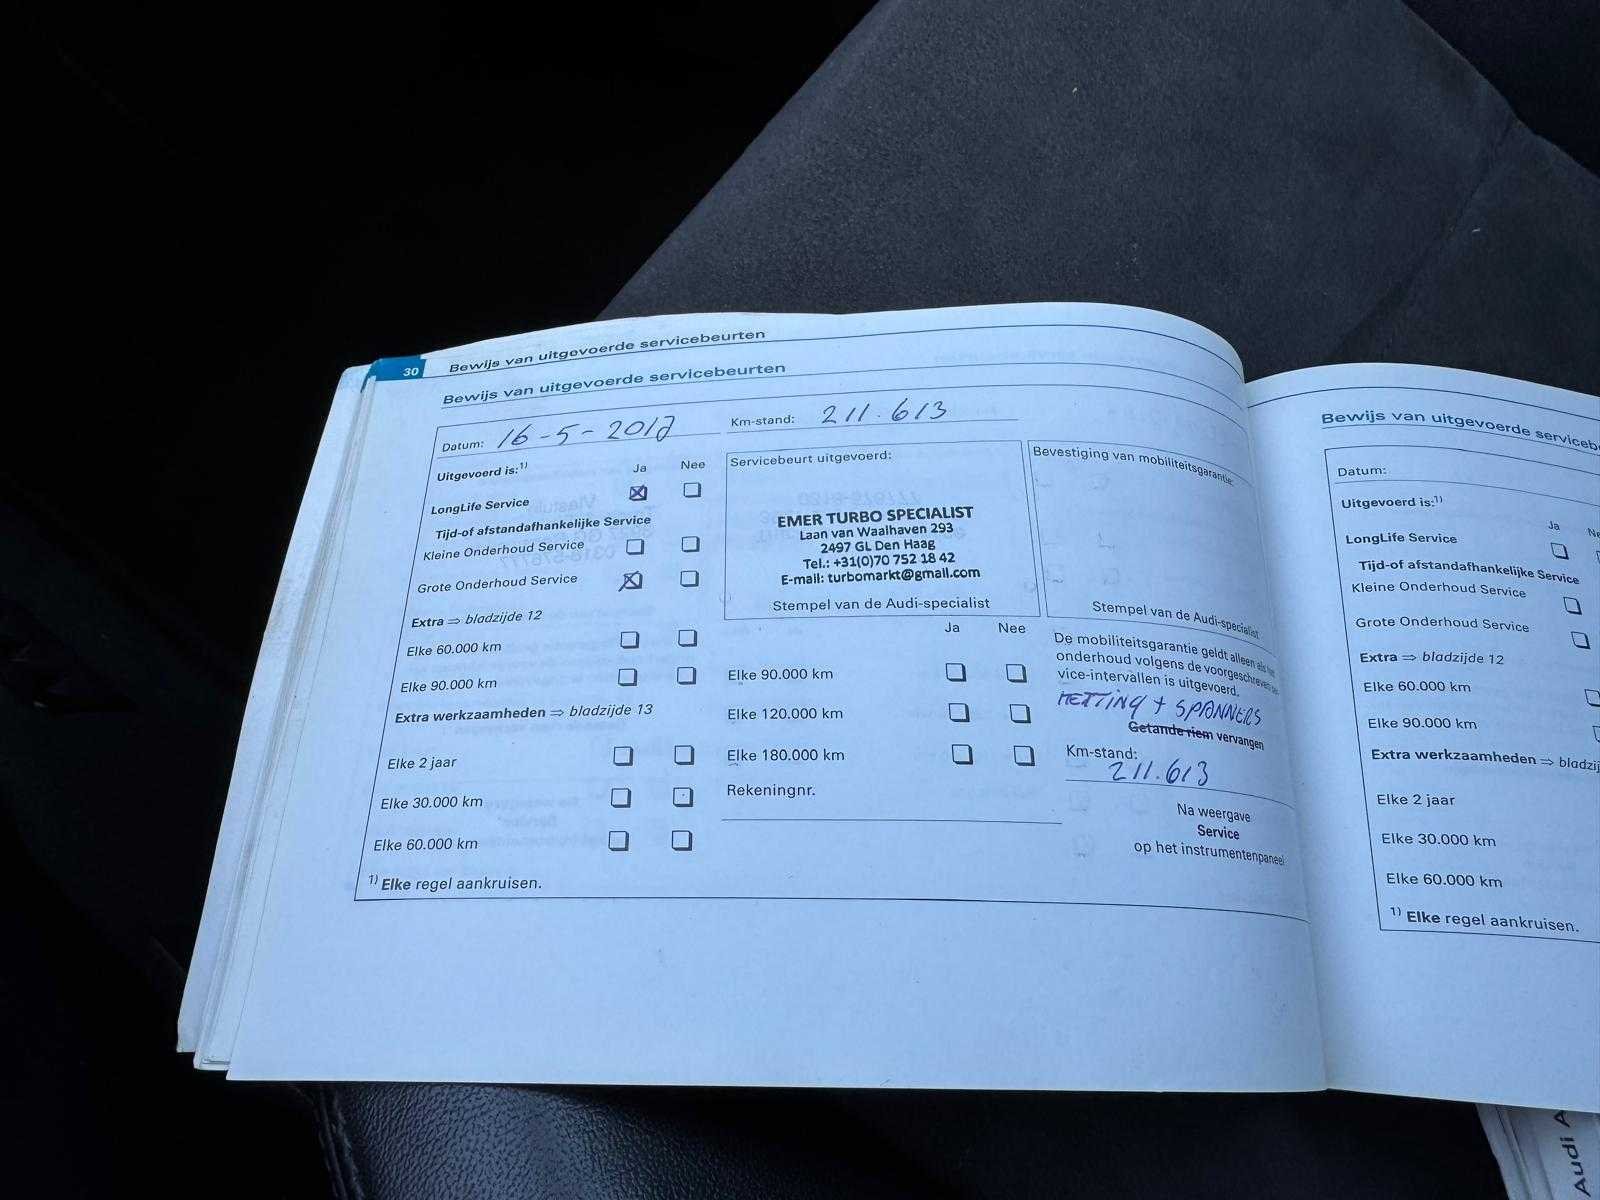 30 Bewijs van uitgevoerde servicebeurten
Bewijs van uitgevoerde servicebeurten
Datum: 16-5-2017 Km-stand: 211.613
Uitgevoerd is:1) Ja Nee
LongLife Service
Tijd-of afstandafhankelijke Service
Kleine Onderhoud Service
Grote Onderhoud Service
Extra ⇒ bladzijde 12
Elke 60.000 km
Elke 90.000 km
Extra werkzaamheden ⇒ bladzijde 13
Elke 2 jaar
Elke 30.000 km
Elke 60.000 km
1) Elke regel aankruisen.
Servicebeurt uitgevoerd:
EMER TURBO SPECIALIST
Laan van Waalhaven 293
2497 GL Den Haag
Tel.: +31(0)70 752 18 42
E-mail: turbomarkt@gmail.com
Stempel van de Audi-specialist
Ja Nee
Elke 90.000 km
Elke 120.000 km
Elke 180.000 km
Rekeningnr.
Bevestiging van mobiliteitsgarantie:
Stempel van de Audi-specialist
De mobiliteitsgarantie geldt alleen als
onderhoud volgens de voorgeschreven
vice-intervallen is uitgevoerd.
KETTING + SPANNERS
Getande riem vervangen
Km-stand:
211.613
Na weergave
Service
op het instrumentenpaneel
Bewijs van uitgevoerde
Datum:
Uitgevoerd is:1)
Ja
LongLife Service
Tijd-of afstandafhankelijke Service
Kleine Onderhoud Service
Grote Onderhoud Service
Extra ⇒ bladzijde 12
Elke 60.000 km
Elke 90.000 km
Extra werkzaamheden ⇒
Elke 2 jaar
Elke 30.000 km
Elke 60.000 km
1) Elke regel aankruisen.
Audi